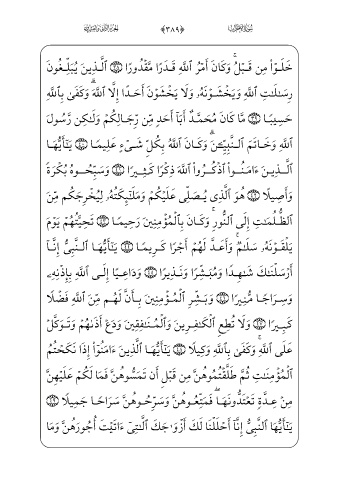 سورة الأحزاب ﴿٣٨٩﴾ الجزء الثاني والعشرون
خَلَوْا۟ مِن قَبْلُ ۚ وَكَانَ أَمْرُ ٱللَّهِ قَدَرًا مَّقْدُورًا ۝٣٨ ٱلَّذِينَ يُبَلِّغُونَ
رِسَـٰلَـٰتِ ٱللَّهِ وَيَخْشَوْنَهُۥ وَلَا يَخْشَوْنَ أَحَدًا إِلَّا ٱللَّهَ ۗ وَكَفَىٰ بِٱللَّهِ
حَسِيبًا ۝٣٩ مَّا كَانَ مُحَمَّدٌ أَبَآ أَحَدٍ مِّن رِّجَالِكُمْ وَلَـٰكِن رَّسُولَ
ٱللَّهِ وَخَاتَمَ ٱلنَّبِيِّـۧنَ ۗ وَكَانَ ٱللَّهُ بِكُلِّ شَىْءٍ عَلِيمًا ۝٤٠ يَـٰٓأَيُّهَا
ٱلَّذِينَ ءَامَنُوا۟ ٱذْكُرُوا۟ ٱللَّهَ ذِكْرًا كَثِيرًا ۝٤١ وَسَبِّحُوهُ بُكْرَةً
وَأَصِيلًا ۝٤٢ هُوَ ٱلَّذِى يُصَلِّى عَلَيْكُمْ وَمَلَـٰٓئِكَتُهُۥ لِيُخْرِجَكُم مِّنَ
ٱلظُّلُمَـٰتِ إِلَى ٱلنُّورِ ۚ وَكَانَ بِٱلْمُؤْمِنِينَ رَحِيمًا ۝٤٣ تَحِيَّتُهُمْ يَوْمَ
يَلْقَوْنَهُۥ سَلَـٰمٌ ۚ وَأَعَدَّ لَهُمْ أَجْرًا كَرِيمًا ۝٤٤ يَـٰٓأَيُّهَا ٱلنَّبِىُّ إِنَّآ
أَرْسَلْنَـٰكَ شَـٰهِدًا وَمُبَشِّرًا وَنَذِيرًا ۝٤٥ وَدَاعِيًا إِلَى ٱللَّهِ بِإِذْنِهِۦ
وَسِرَاجًا مُّنِيرًا ۝٤٦ وَبَشِّرِ ٱلْمُؤْمِنِينَ بِأَنَّ لَهُم مِّنَ ٱللَّهِ فَضْلًا
كَبِيرًا ۝٤٧ وَلَا تُطِعِ ٱلْكَـٰفِرِينَ وَٱلْمُنَـٰفِقِينَ وَدَعْ أَذَىٰهُمْ وَتَوَكَّلْ
عَلَى ٱللَّهِ ۚ وَكَفَىٰ بِٱللَّهِ وَكِيلًا ۝٤٨ يَـٰٓأَيُّهَا ٱلَّذِينَ ءَامَنُوٓا۟ إِذَا نَكَحْتُمُ
ٱلْمُؤْمِنَـٰتِ ثُمَّ طَلَّقْتُمُوهُنَّ مِن قَبْلِ أَن تَمَسُّوهُنَّ فَمَا لَكُمْ عَلَيْهِنَّ
مِنْ عِدَّةٍ تَعْتَدُّونَهَا ۖ فَمَتِّعُوهُنَّ وَسَرِّحُوهُنَّ سَرَاحًا جَمِيلًا ۝٤٩
يَـٰٓأَيُّهَا ٱلنَّبِىُّ إِنَّآ أَحْلَلْنَا لَكَ أَزْوَٰجَكَ ٱلَّـٰتِىٓ ءَاتَيْتَ أُجُورَهُنَّ وَمَا